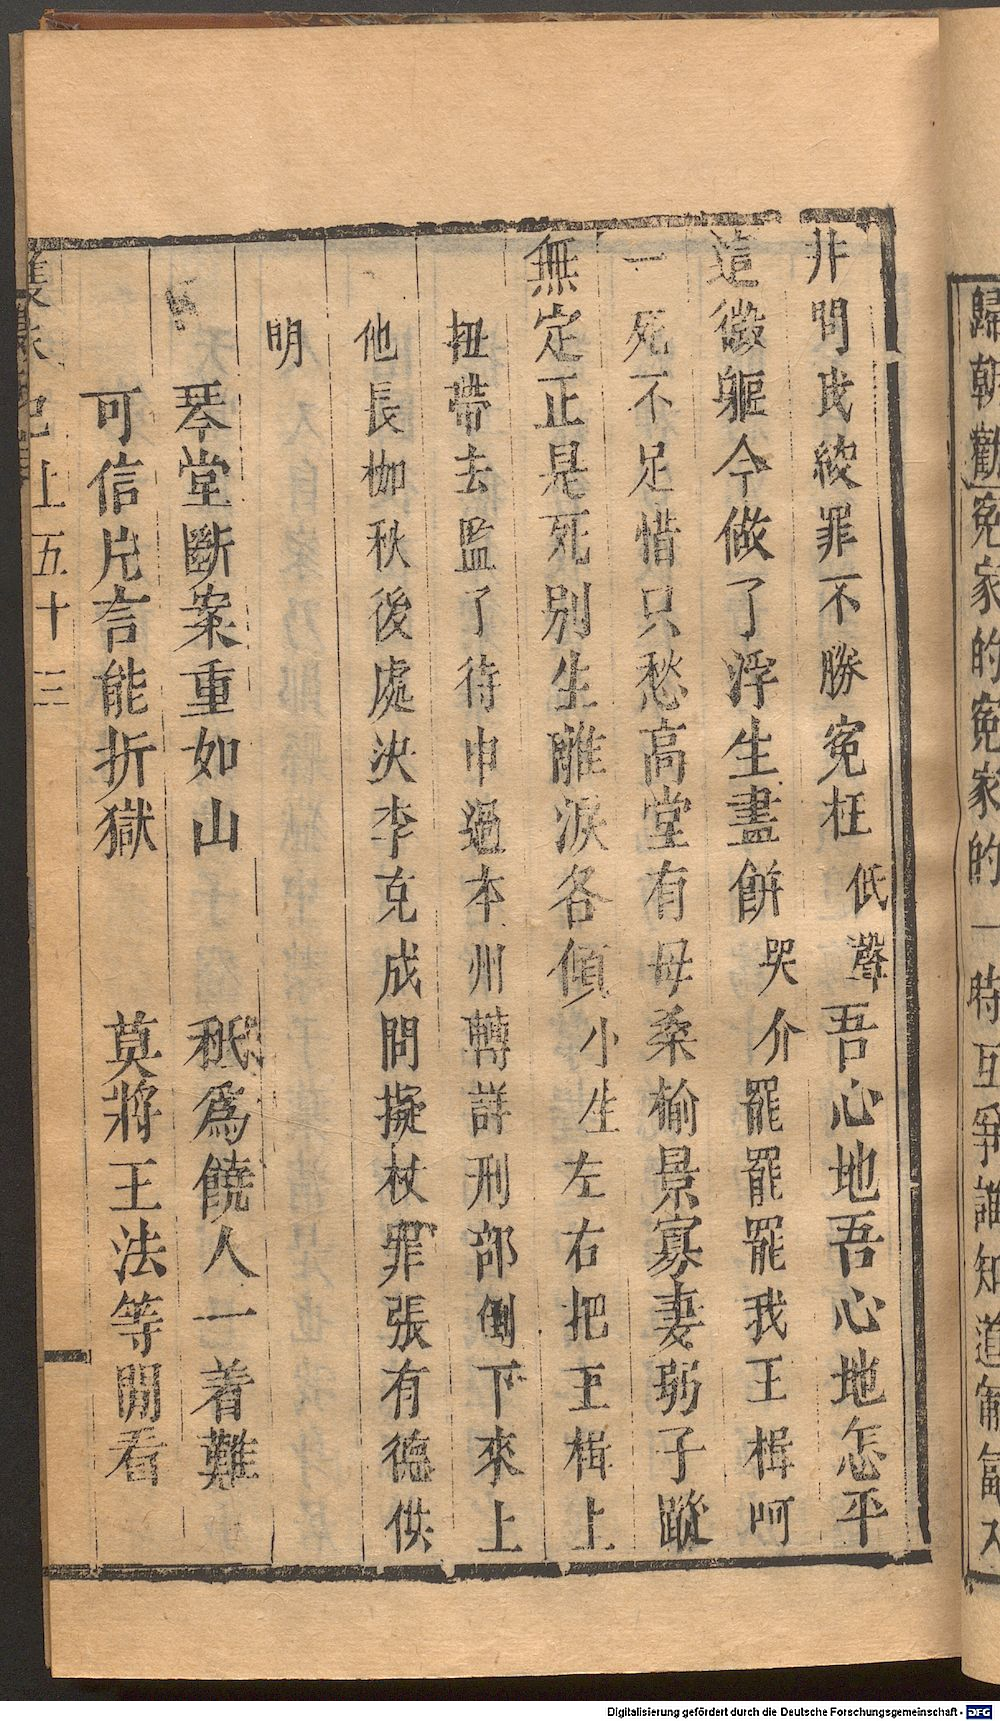 非間成綾罪不勝寃枉低聲吾心地吾心地怎平
這微軀今做了浮生盡餅哭介罷罷罷我王楫呵
一死不足惜只愁高堂有母桑榆景寡妻弱子蹤
無定正是死別生離淚各傾小生左右把王楫上
扭帶去監了待申過本州轉詳刑部倒下來上
他長枷秋後處決李克成問擬杖罪張有德供
明
琴堂斷案重如山 秪為饒人一着難
可信片言能折獄 莫將王法等閒看
記上五十三
歸朝勸寃家的寃家的一時互爭誰知道
Digitalisierung gefördert durch die Deutsche Forschungsgemeinschaft - DFG